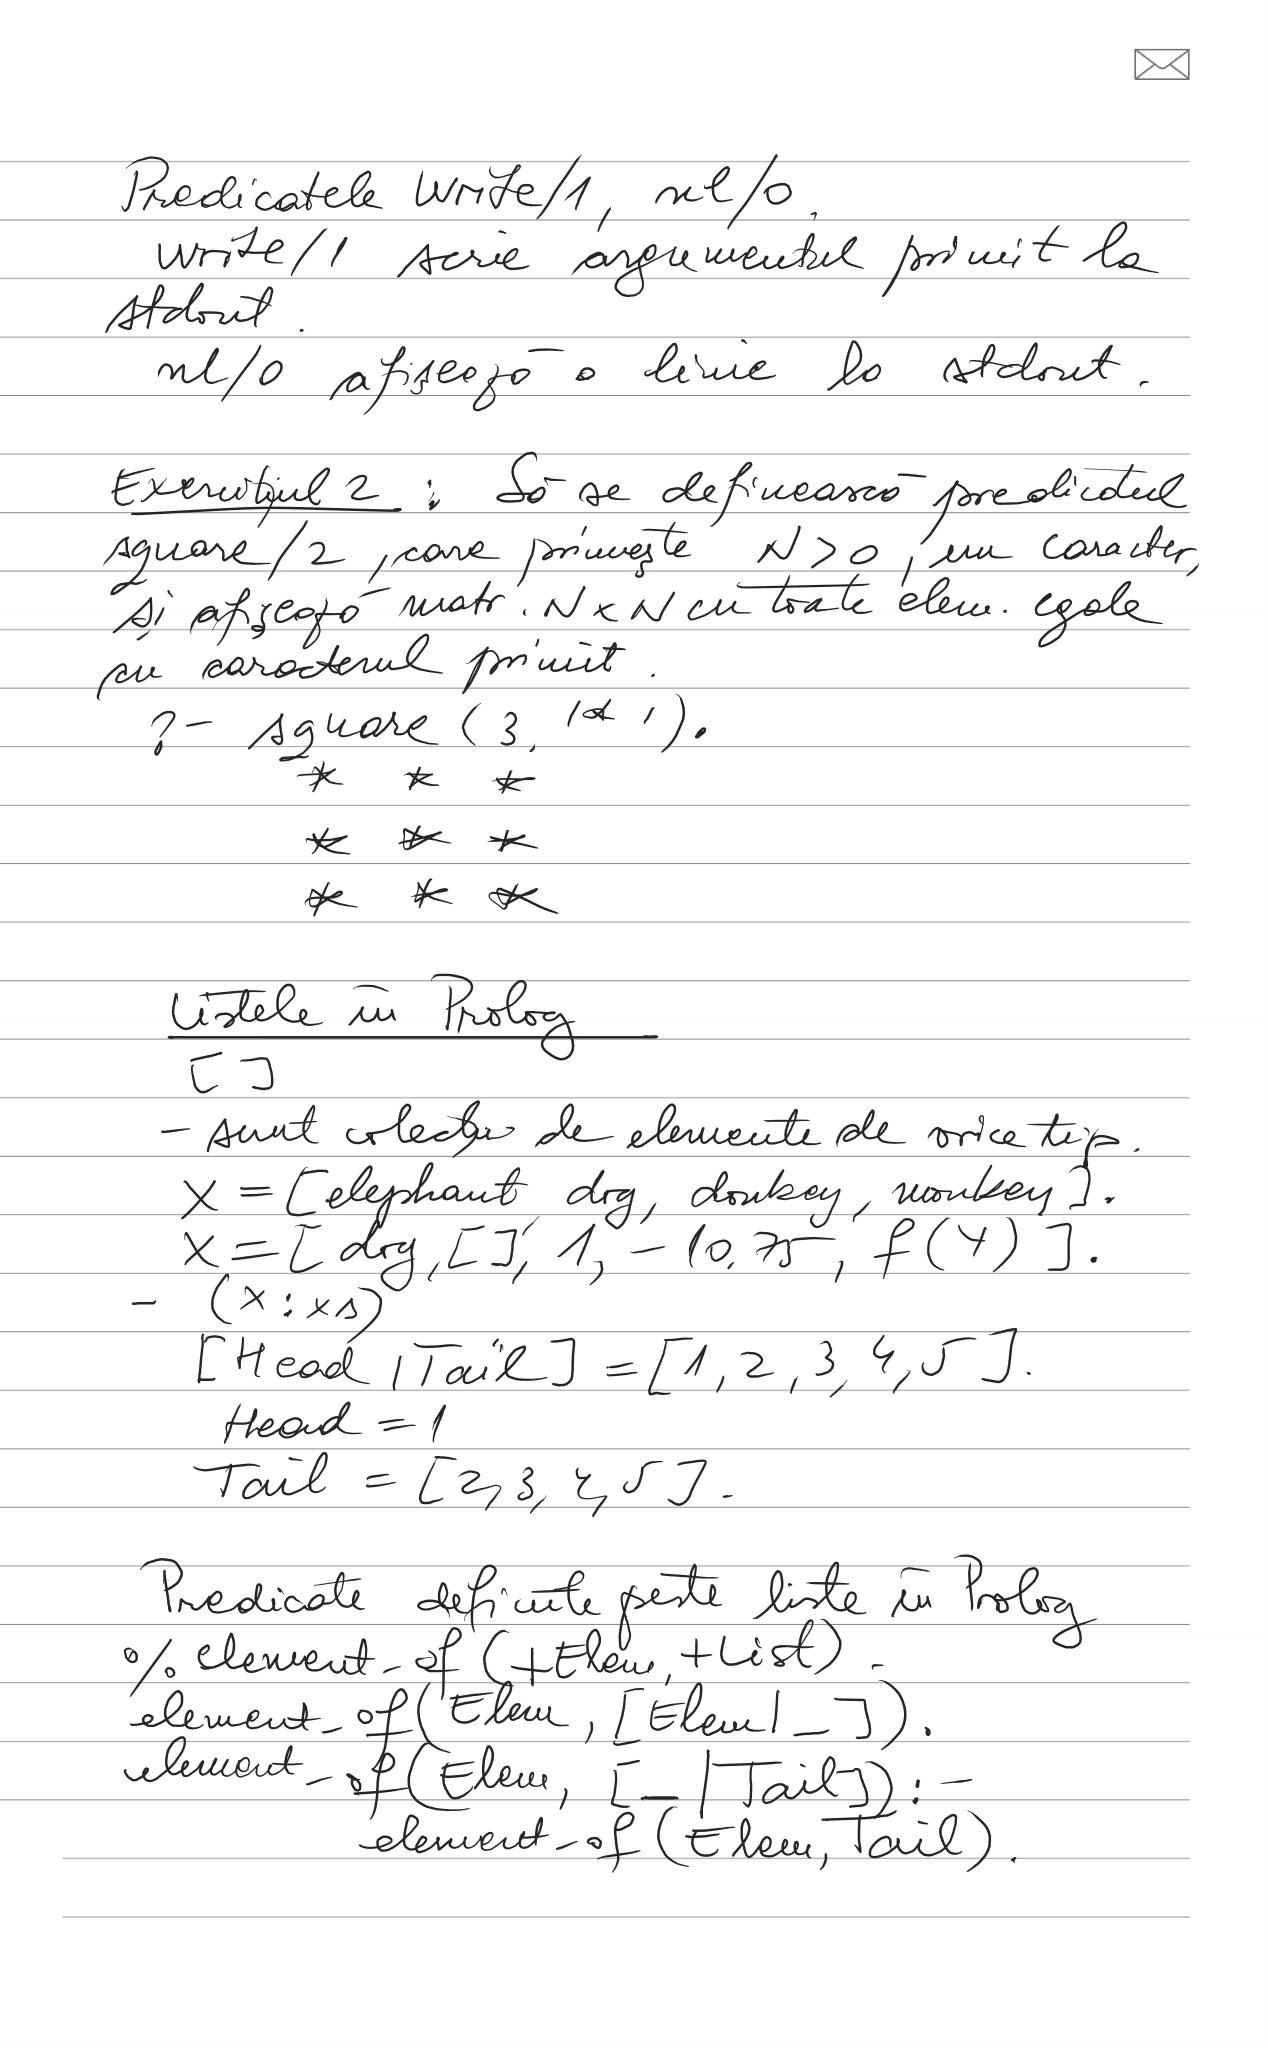 Predicatele Write/1, nl/0.
write/1 scrie argumentul primit la
stdout.
nl/0 afișează o linie la stdout.
Exercițiul 2 : Să se definească predicatul
square/2, care primește N>0, un caracter,
și afișează matr. N×N cu toate elem. egale
cu caracterul primit.
?- square (3, '*').
* * *
* * *
* * *
Listele în Prolog
[ ]
- sunt colecții de elemente de orice tip.
X = [elephant dog, donkey, monkey].
X = [dog, [], 1, -10.75, f(Y)].
- (x:xs)
[Head | Tail] = [1, 2, 3, 4, 5].
Head = 1
Tail = [2, 3, 4, 5].
Predicate definite peste liste în Prolog
% element_of (+Elem, +List).
element_of(Elem, [Elem|_]).
element_of(Elem, [_|Tail]) :-
element_of (Elem, Tail).